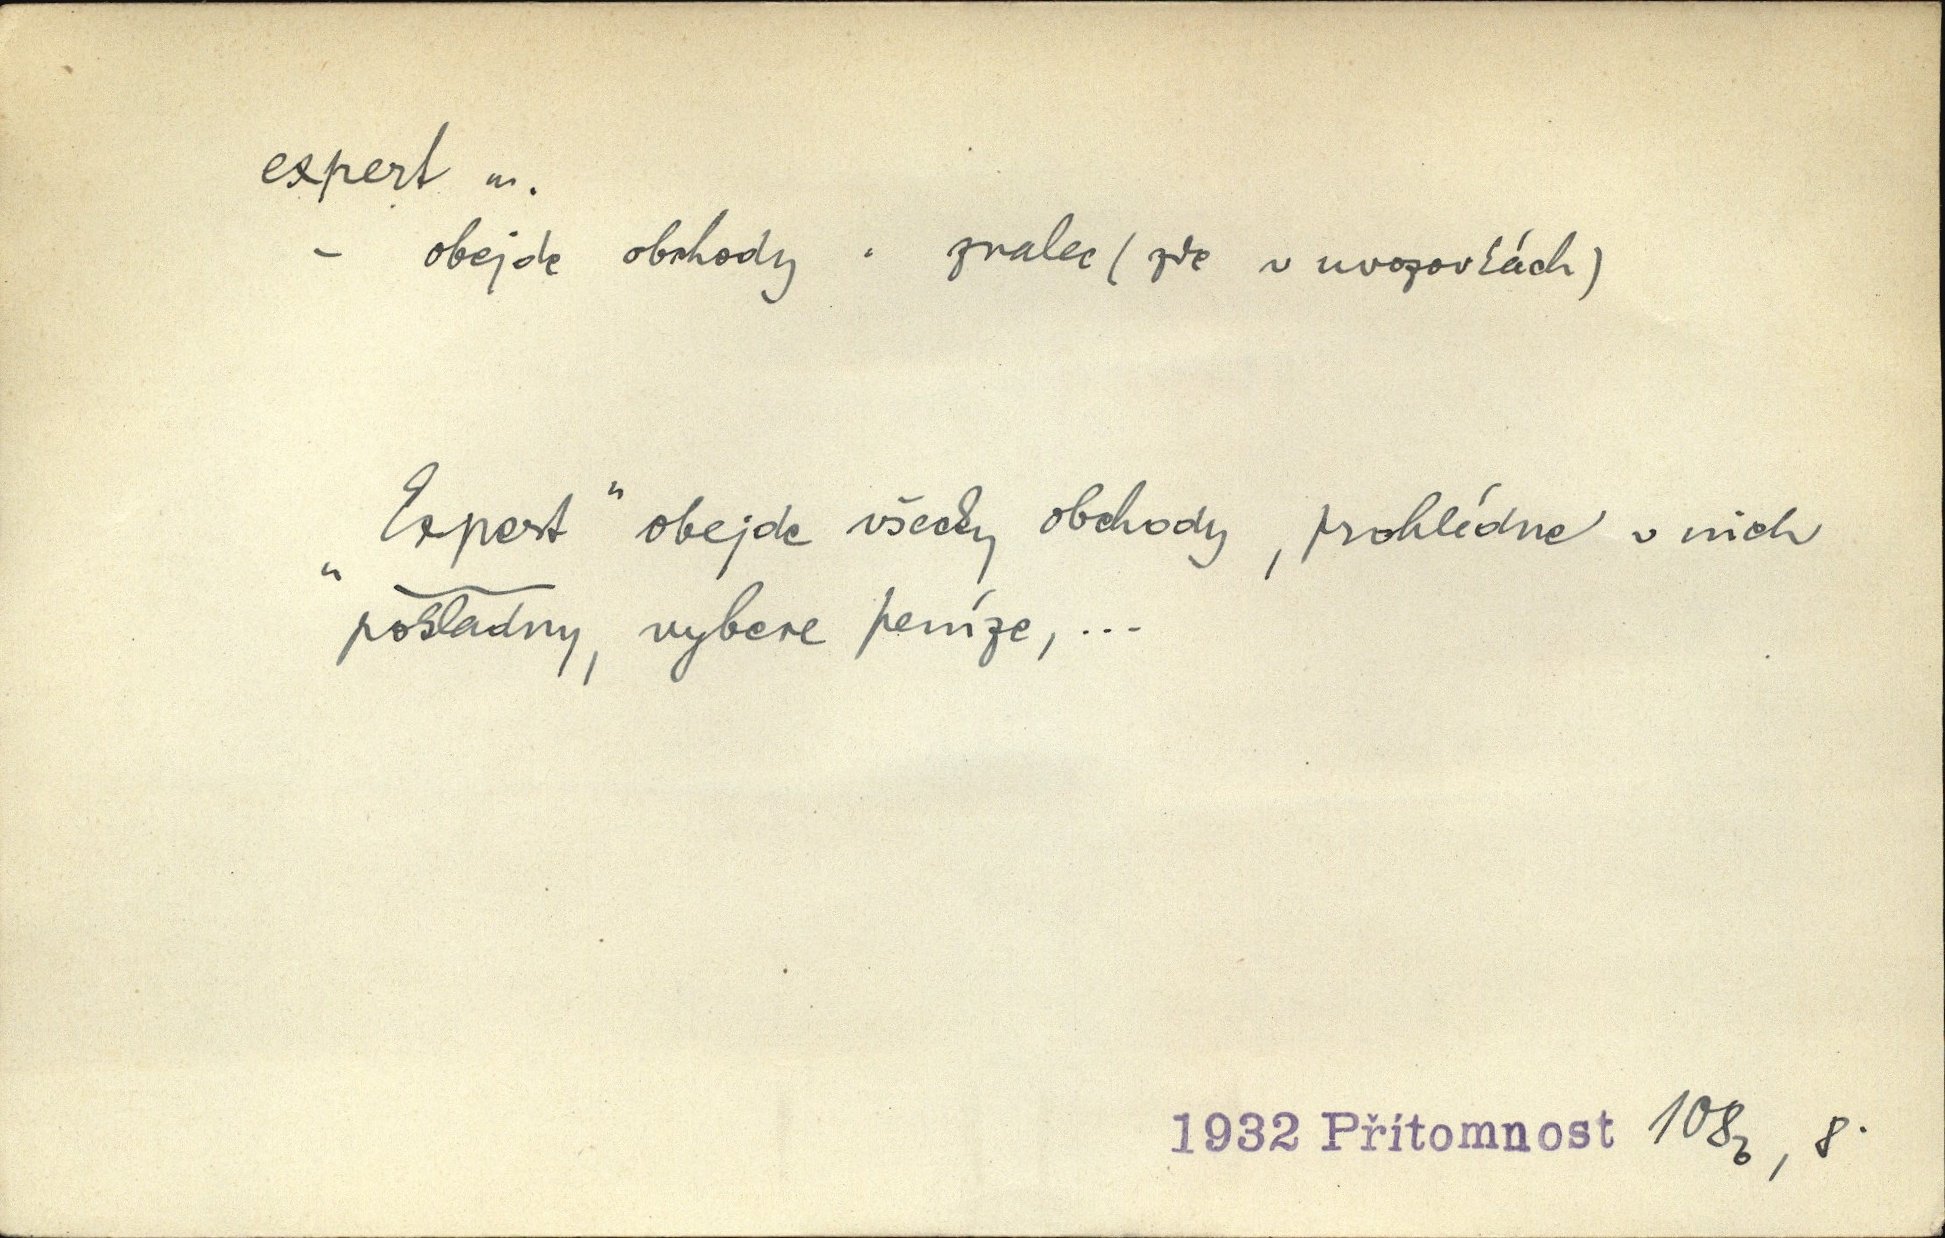 expert m.
- obejde obchody. znalec (zde v uvozovkách)
„Expert" obejde všecky obchody, prohlédne v nich
pokladny, vybere peníze, ...
1932 Přítomnost 108b, 8.